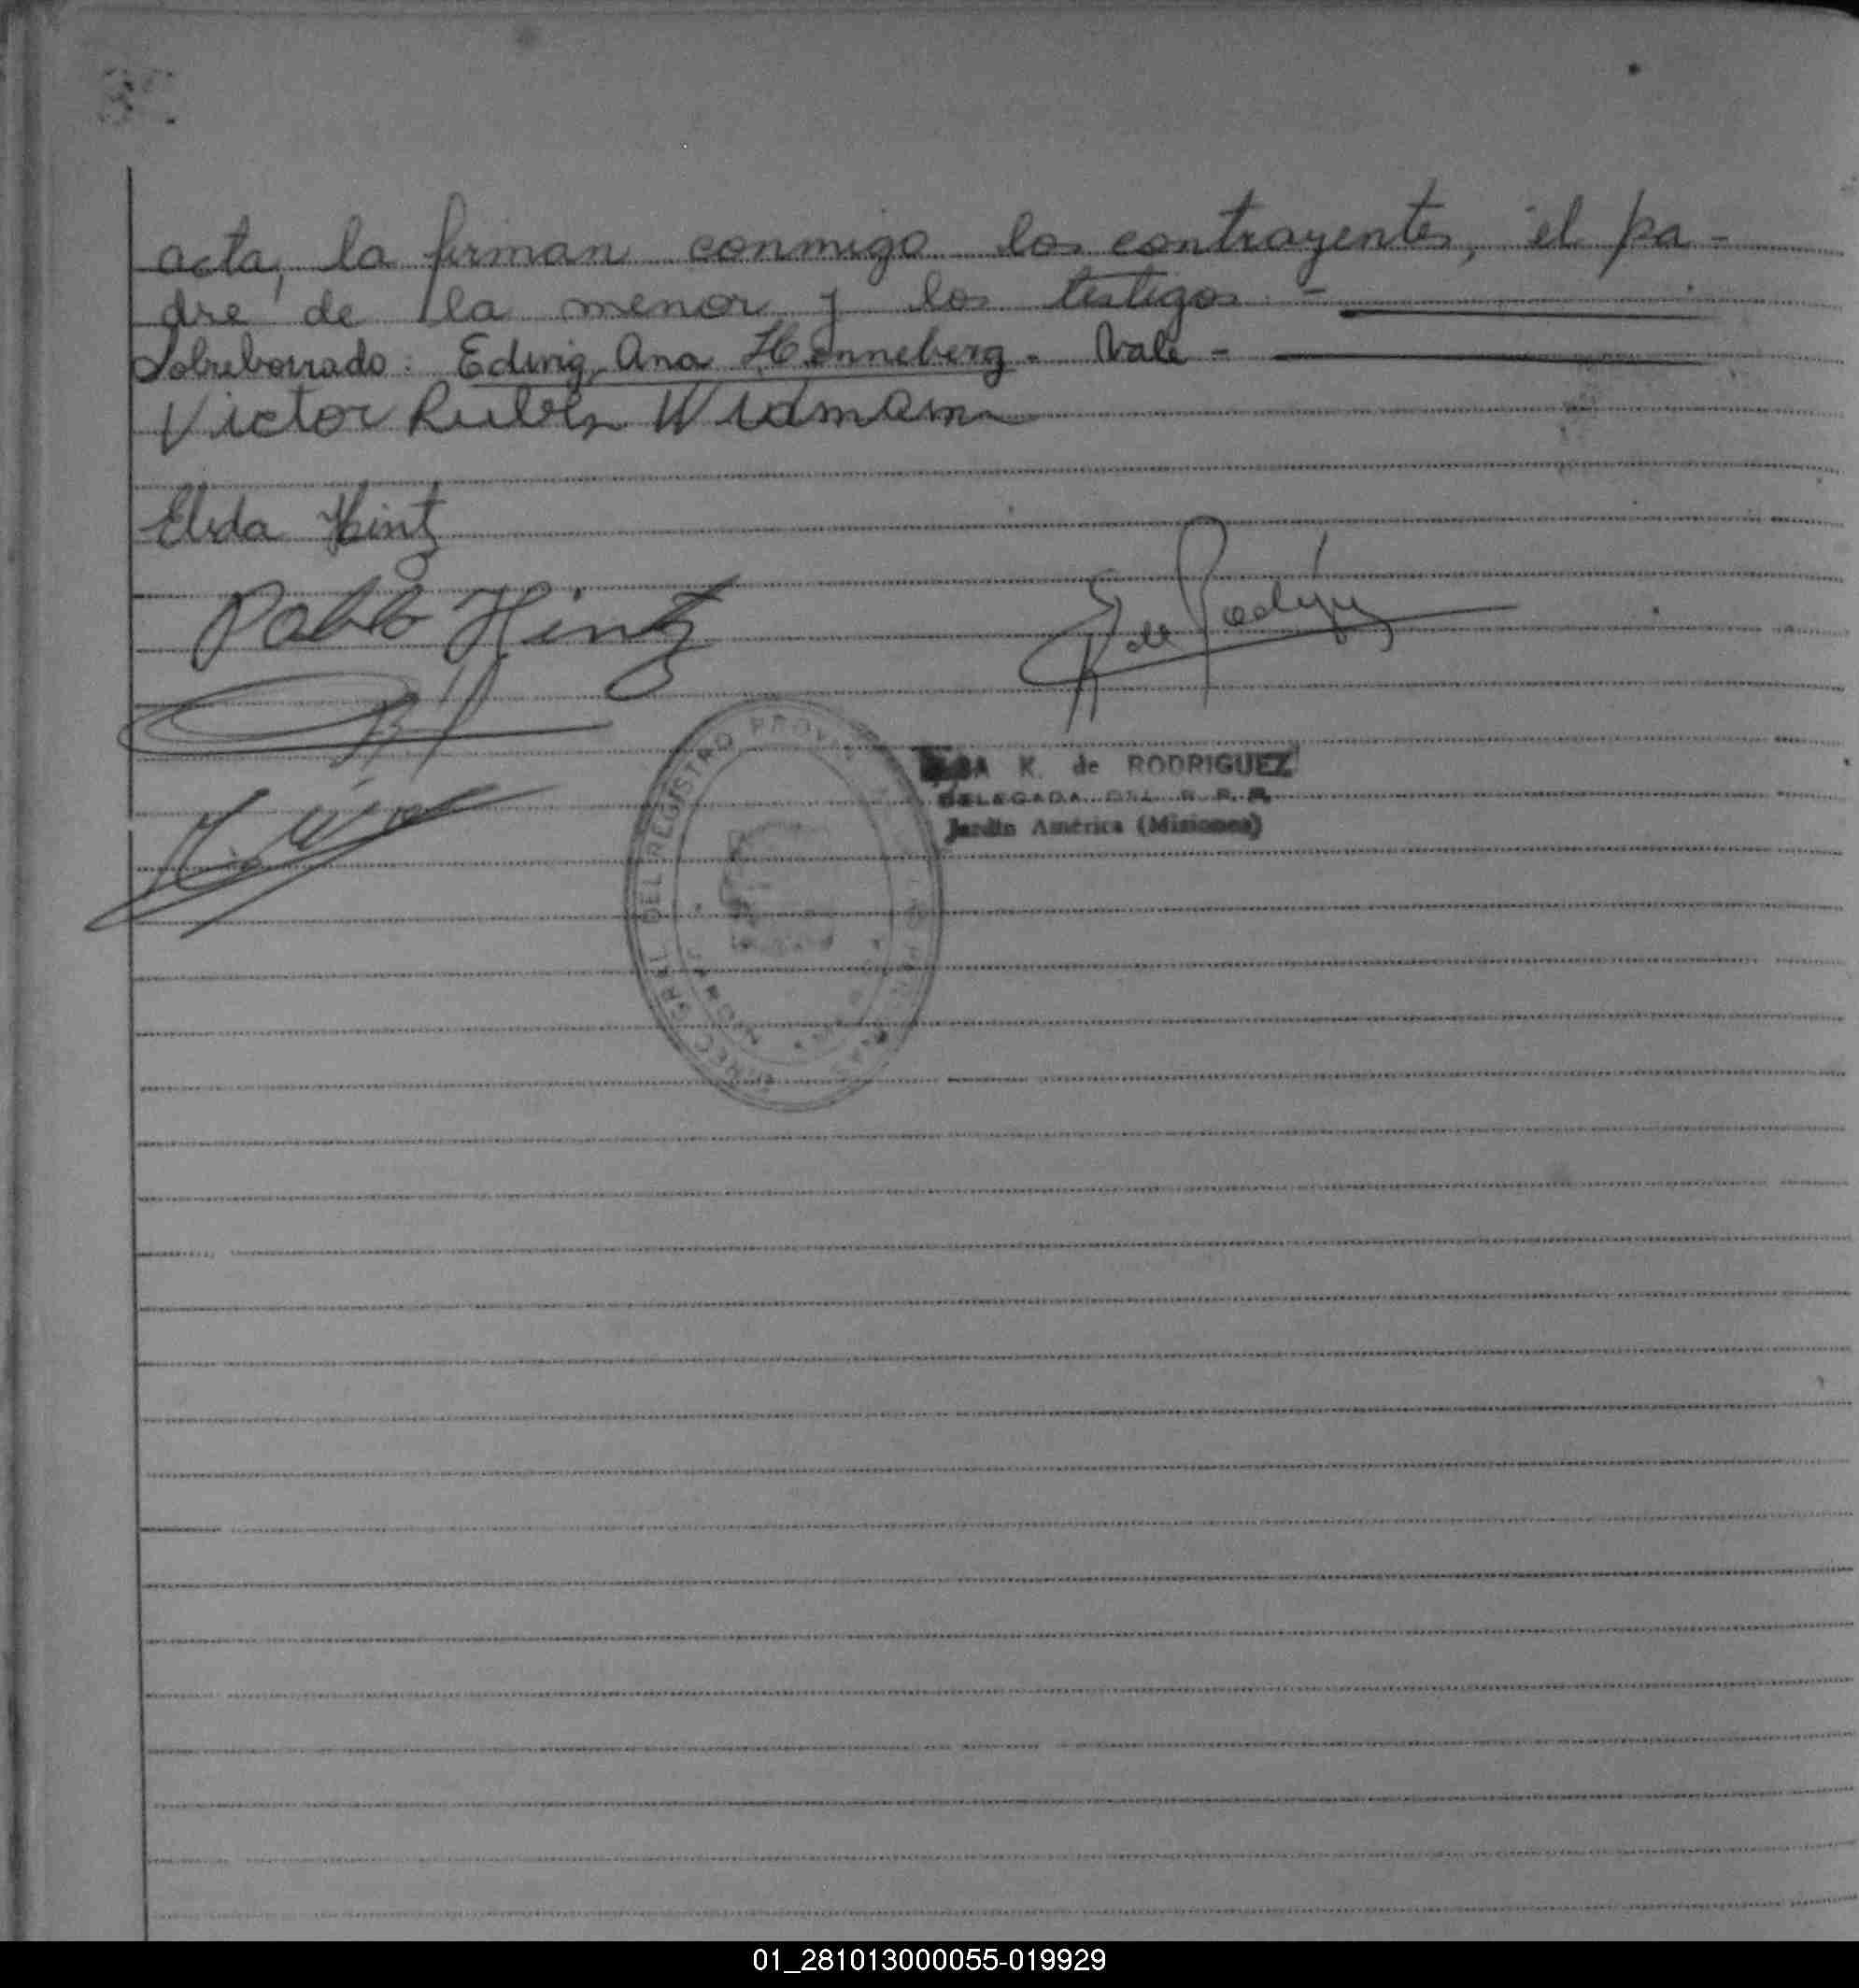 acta, la firman conmigo los contrayentes, el pa-
dre de la menor y los testigos.-
Sobreborrado: Edwig Ana Henneberg. Vale-
Victor Ruben Widmann
Elida Hintz
Pablo Hintz
K. de RODRIGUEZ
DELEGADA DEL R. P. P.
Jardín América (Misiones)
GRAL DEL REGISTRO PROV
01_281013000055-019929